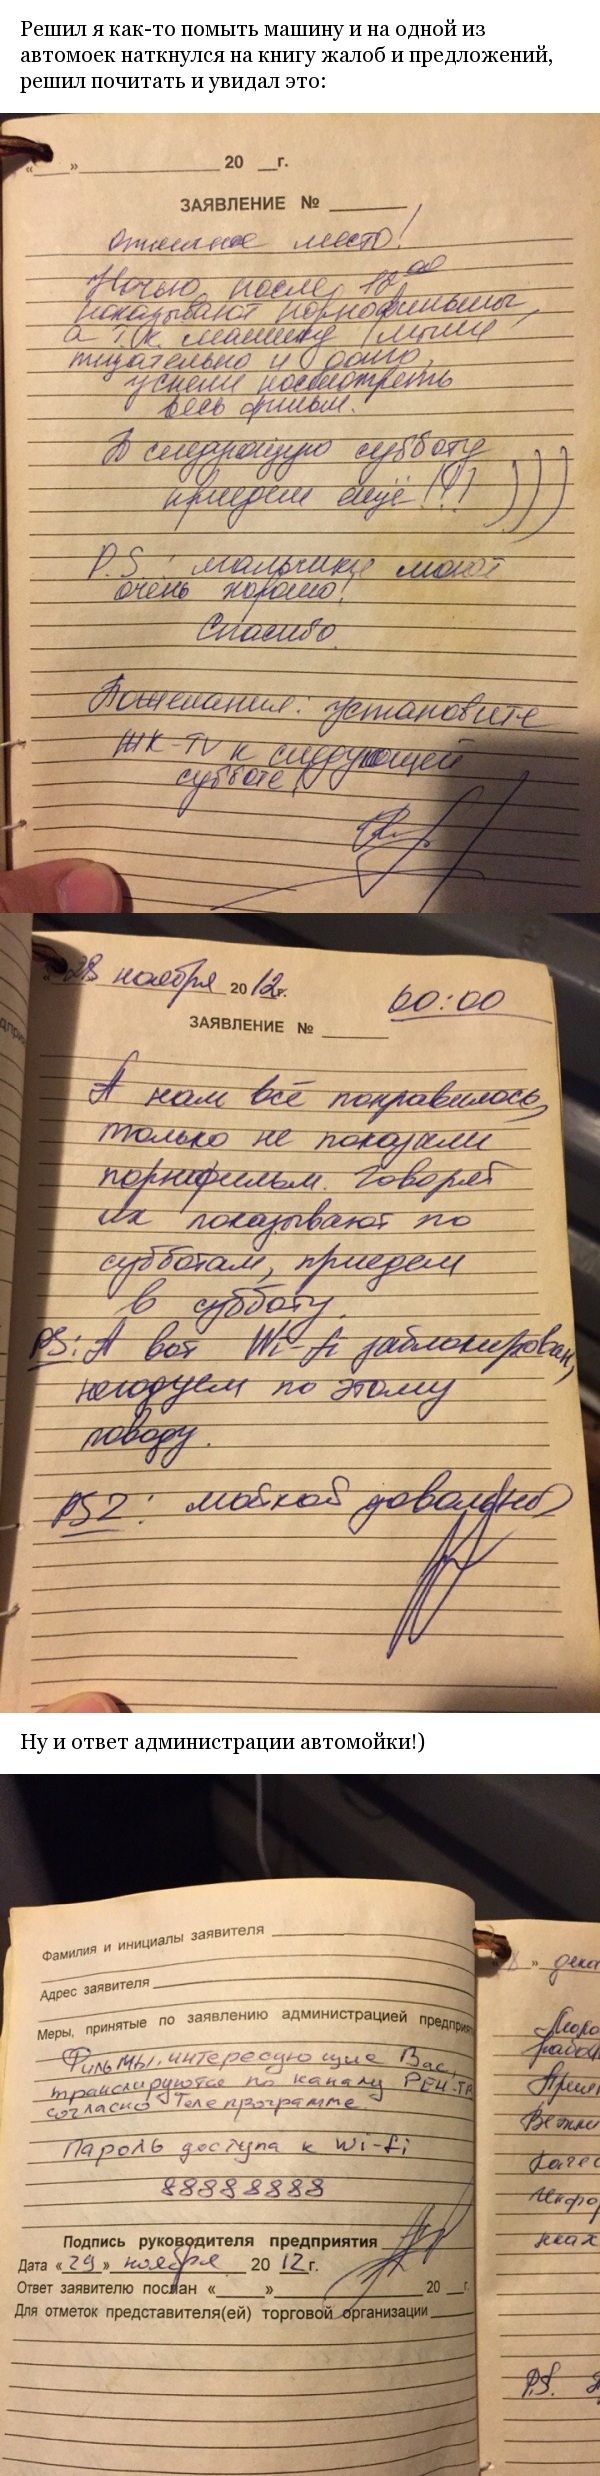 Решил я как-то помыть машину и на одной из
автомоек наткнулся на книгу жалоб и предложений,
решил почитать и увидал это:
«___» ________ 20 __г.
ЗАЯВЛЕНИЕ № ______
Отличное место!
Ночью, после 18 00
показывают порнофильмы,
а т.к. машину мыли
тщательно и долго,
успели посмотреть
весь фильм.
В следующую субботу
приедем ещё!!! )))
P.S.: мальчики моют
очень хорошо!
Спасибо.
Пожелания: установите
ЖК-TV к следующей
субботе!
28 ноября 2012г. 00:00
ЗАЯВЛЕНИЕ № ______
А нам всё понравилось,
только не показали
порнофильм. Говорят
их показывают по
субботам, приедем
в субботу.
PS: А вот Wi-fi заблокирован,
негодуем по этому
поводу.
PS2: мойкой довольны
Ну и ответ администрации автомойки!)
Фамилия и инициалы заявителя
Адрес заявителя
Меры, принятые по заявлению администрацией предприят
Фильмы, интересующие Вас,
транслируются по каналу РЕН-ТВ
согласно Телепрограмме.
Пароль доступа к wi-fi
88888888
Подпись руководителя предприятия
Дата «29» ноября 2012г.
Ответ заявителю послан «___» ________ 20 __г.
Для отметок представителя(ей) торговой организации
P.S.